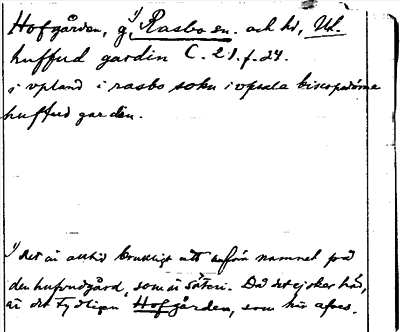 Hofgården, g¹⁾, Rasbo sn. och hd, Ul.
huffud gardin C. 21. f. 24.
i vpland i rasbo sokn i vpsala biscopsdöme
huffud garden.
¹⁾ Det är alltid brukligt att anföra namnet på
den hufvudgård, som är säteri. Då det ej sker här,
är det tydligen Hofgården, som här afses.